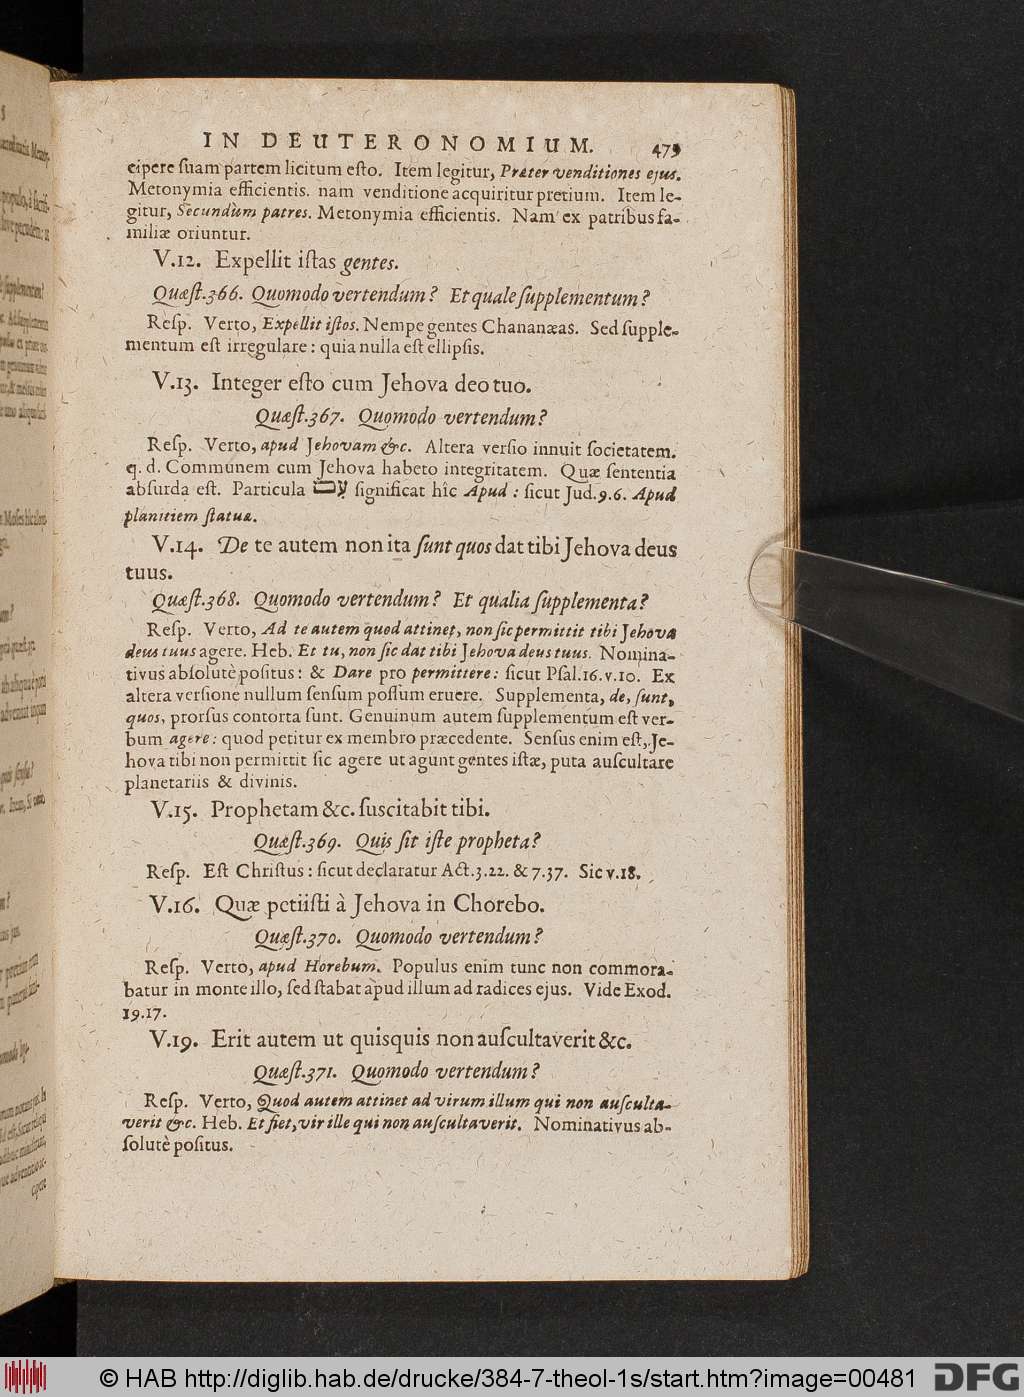 IN DEUTERONOMIUM. 479
cipere suam partem licitum esto. Item legitur, Præter venditiones ejus.
Metonymia efficientis. nam venditione acquiritur pretium. Item le-
gitur, Secundùm patres. Metonymia efficientis. Nam ex patribus fa-
miliæ oriuntur.
V.12. Expellit istas gentes.
Quæst.366. Quomodo vertendum? Et quale supplementum?
Resp. Verto, Expellit istos. Nempe gentes Chananæas. Sed supple-
mentum est irregulare: quia nulla est ellipsis.
V.13. Integer esto cum Jehova deo tuo.
Quæst.367. Quomodo vertendum?
Resp. Verto, apud Jehovam &c. Altera versio innuit societatem.
q. d. Communem cum Jehova habeto integritatem. Quæ sententia
absurda est. Particula עם significat hîc Apud: sicut Jud.9.6. Apud
planitiem statuæ.
V.14. De te autem non ita sunt quos dat tibi Jehova deus
tuus.
Quæst.368. Quomodo vertendum? Et qualia supplementa?
Resp. Verto, Ad te autem quod attinet, non sic permittit tibi Jehova
deus tuus agere. Heb. Et tu, non sic dat tibi Jehova deus tuus. Nomina-
tivus absolutè positus: & Dare pro permittere: sicut Psal.16.v.10. Ex
altera versione nullum sensum possum eruere. Supplementa, de, sunt,
quos, prorsus contorta sunt. Genuinum autem supplementum est ver-
bum agere: quod petitur ex membro præcedente. Sensus enim est, Je-
hova tibi non permittit sic agere ut agunt gentes istæ, puta auscultare
planetariis & divinis.
V.15. Prophetam &c. suscitabit tibi.
Quæst.369. Quis sit iste propheta?
Resp. Est Christus: sicut declaratur Act.3.22. & 7.37. Sic v.18.
V.16. Quæ petiisti à Jehova in Chorebo.
Quæst.370. Quomodo vertendum?
Resp. Verto, apud Horebum. Populus enim tunc non commora-
batur in monte illo, sed stabat apud illum ad radices ejus. Vide Exod.
19.17.
V.19. Erit autem ut quisquis non auscultaverit &c.
Quæst.371. Quomodo vertendum?
Resp. Verto, Quod autem attinet ad virum illum qui non ausculta-
verit &c. Heb. Et fiet, vir ille qui non auscultaverit. Nominativus ab-
solutè positus.
© HAB http://diglib.hab.de/drucke/384-7-theol-1s/start.htm?image=00481
DFG